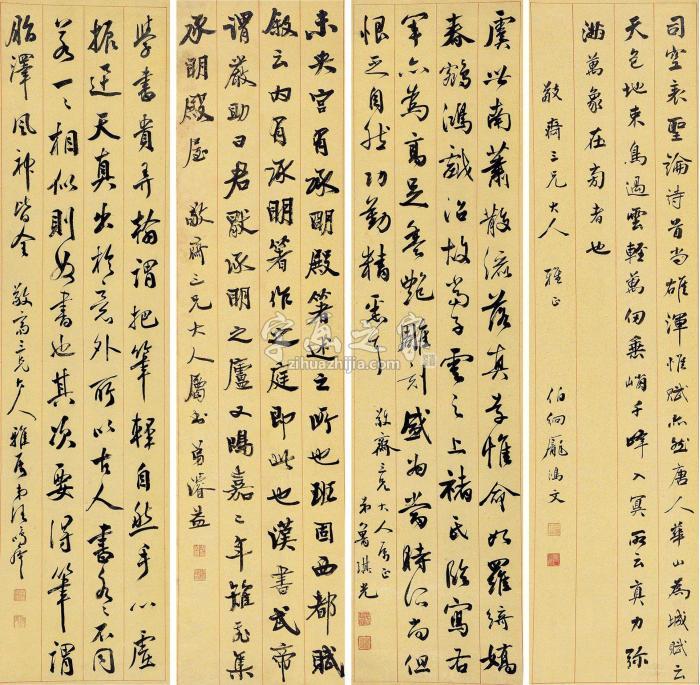 司空表聖論詩首尚雄渾惟賦亦然唐人華山為城賦云
天包地束鳥過雲輕萬仞垂峭千峰入冥所云真力弥
滿萬象在旁者也
敬齋三兄大人 雅正 伯絅龐鴻文
虞世南蕭散流落真草惟命如羅綺嬌
春鵠鴻戲沼故當子雲之上褚氏臨寫右
軍亦為高足豐艷雕刻盛為當時所尚但
恨乏自然功勤精悉耳 敬齋三兄大人屬正
弟魯琪光
未央宮有承明殿著述之所也班固西都賦
敘云內有承明著作之庭即此也漢書武帝
謂嚴助曰君厭承明之廬又鴻嘉二年雉飛集
承明殿屋 敬齋三兄大人屬書 弟濬益
學書貴弄翰謂把筆輕自然手心虛
振迅天真出於意外所以古人書各各不同
若一一相似則奴書也其次要得筆謂
脂澤風神皆全 敬齋三兄大人雅屬 弟汪鳴鑾
字画之家
zihuazhijia.com